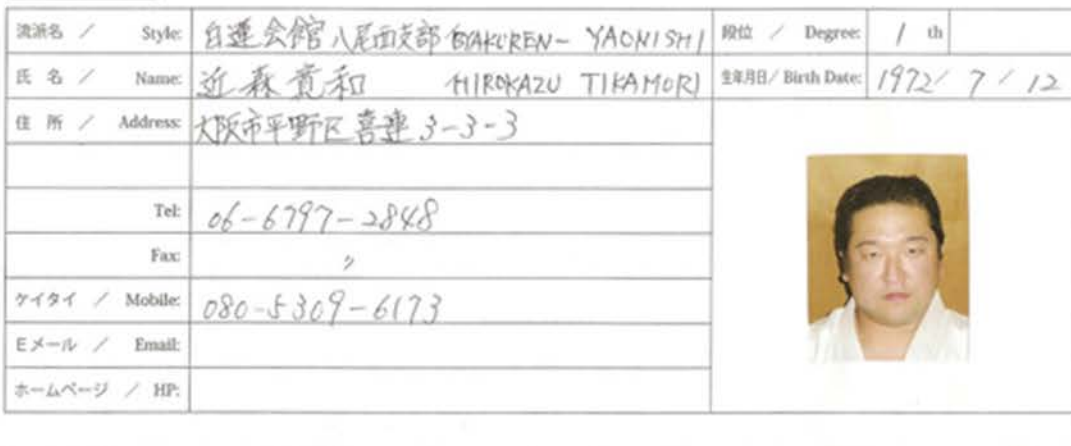 流派名 / Style: 白蓮会館 八尾西支部 BYAKUREN- YAONISHI 段位 / Degree: 1 th
氏 名 / Name: 近森 寛和 HIROKAZU TIKAMORI 生年月日/ Birth Date: 1972 / 7 / 12
住 所 / Address: 大阪市平野区喜連 3-3-3
Tel: 06-6797-2848
Fax: 〃
ケイタイ / Mobile: 080-5309-6173
Eメール / Email:
ホームページ / HP: